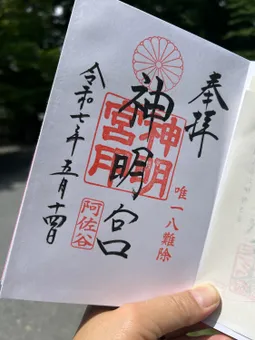 奉拝
唯一八難除
神明宮
神明宮
阿佐谷
令和七年 五月十四日